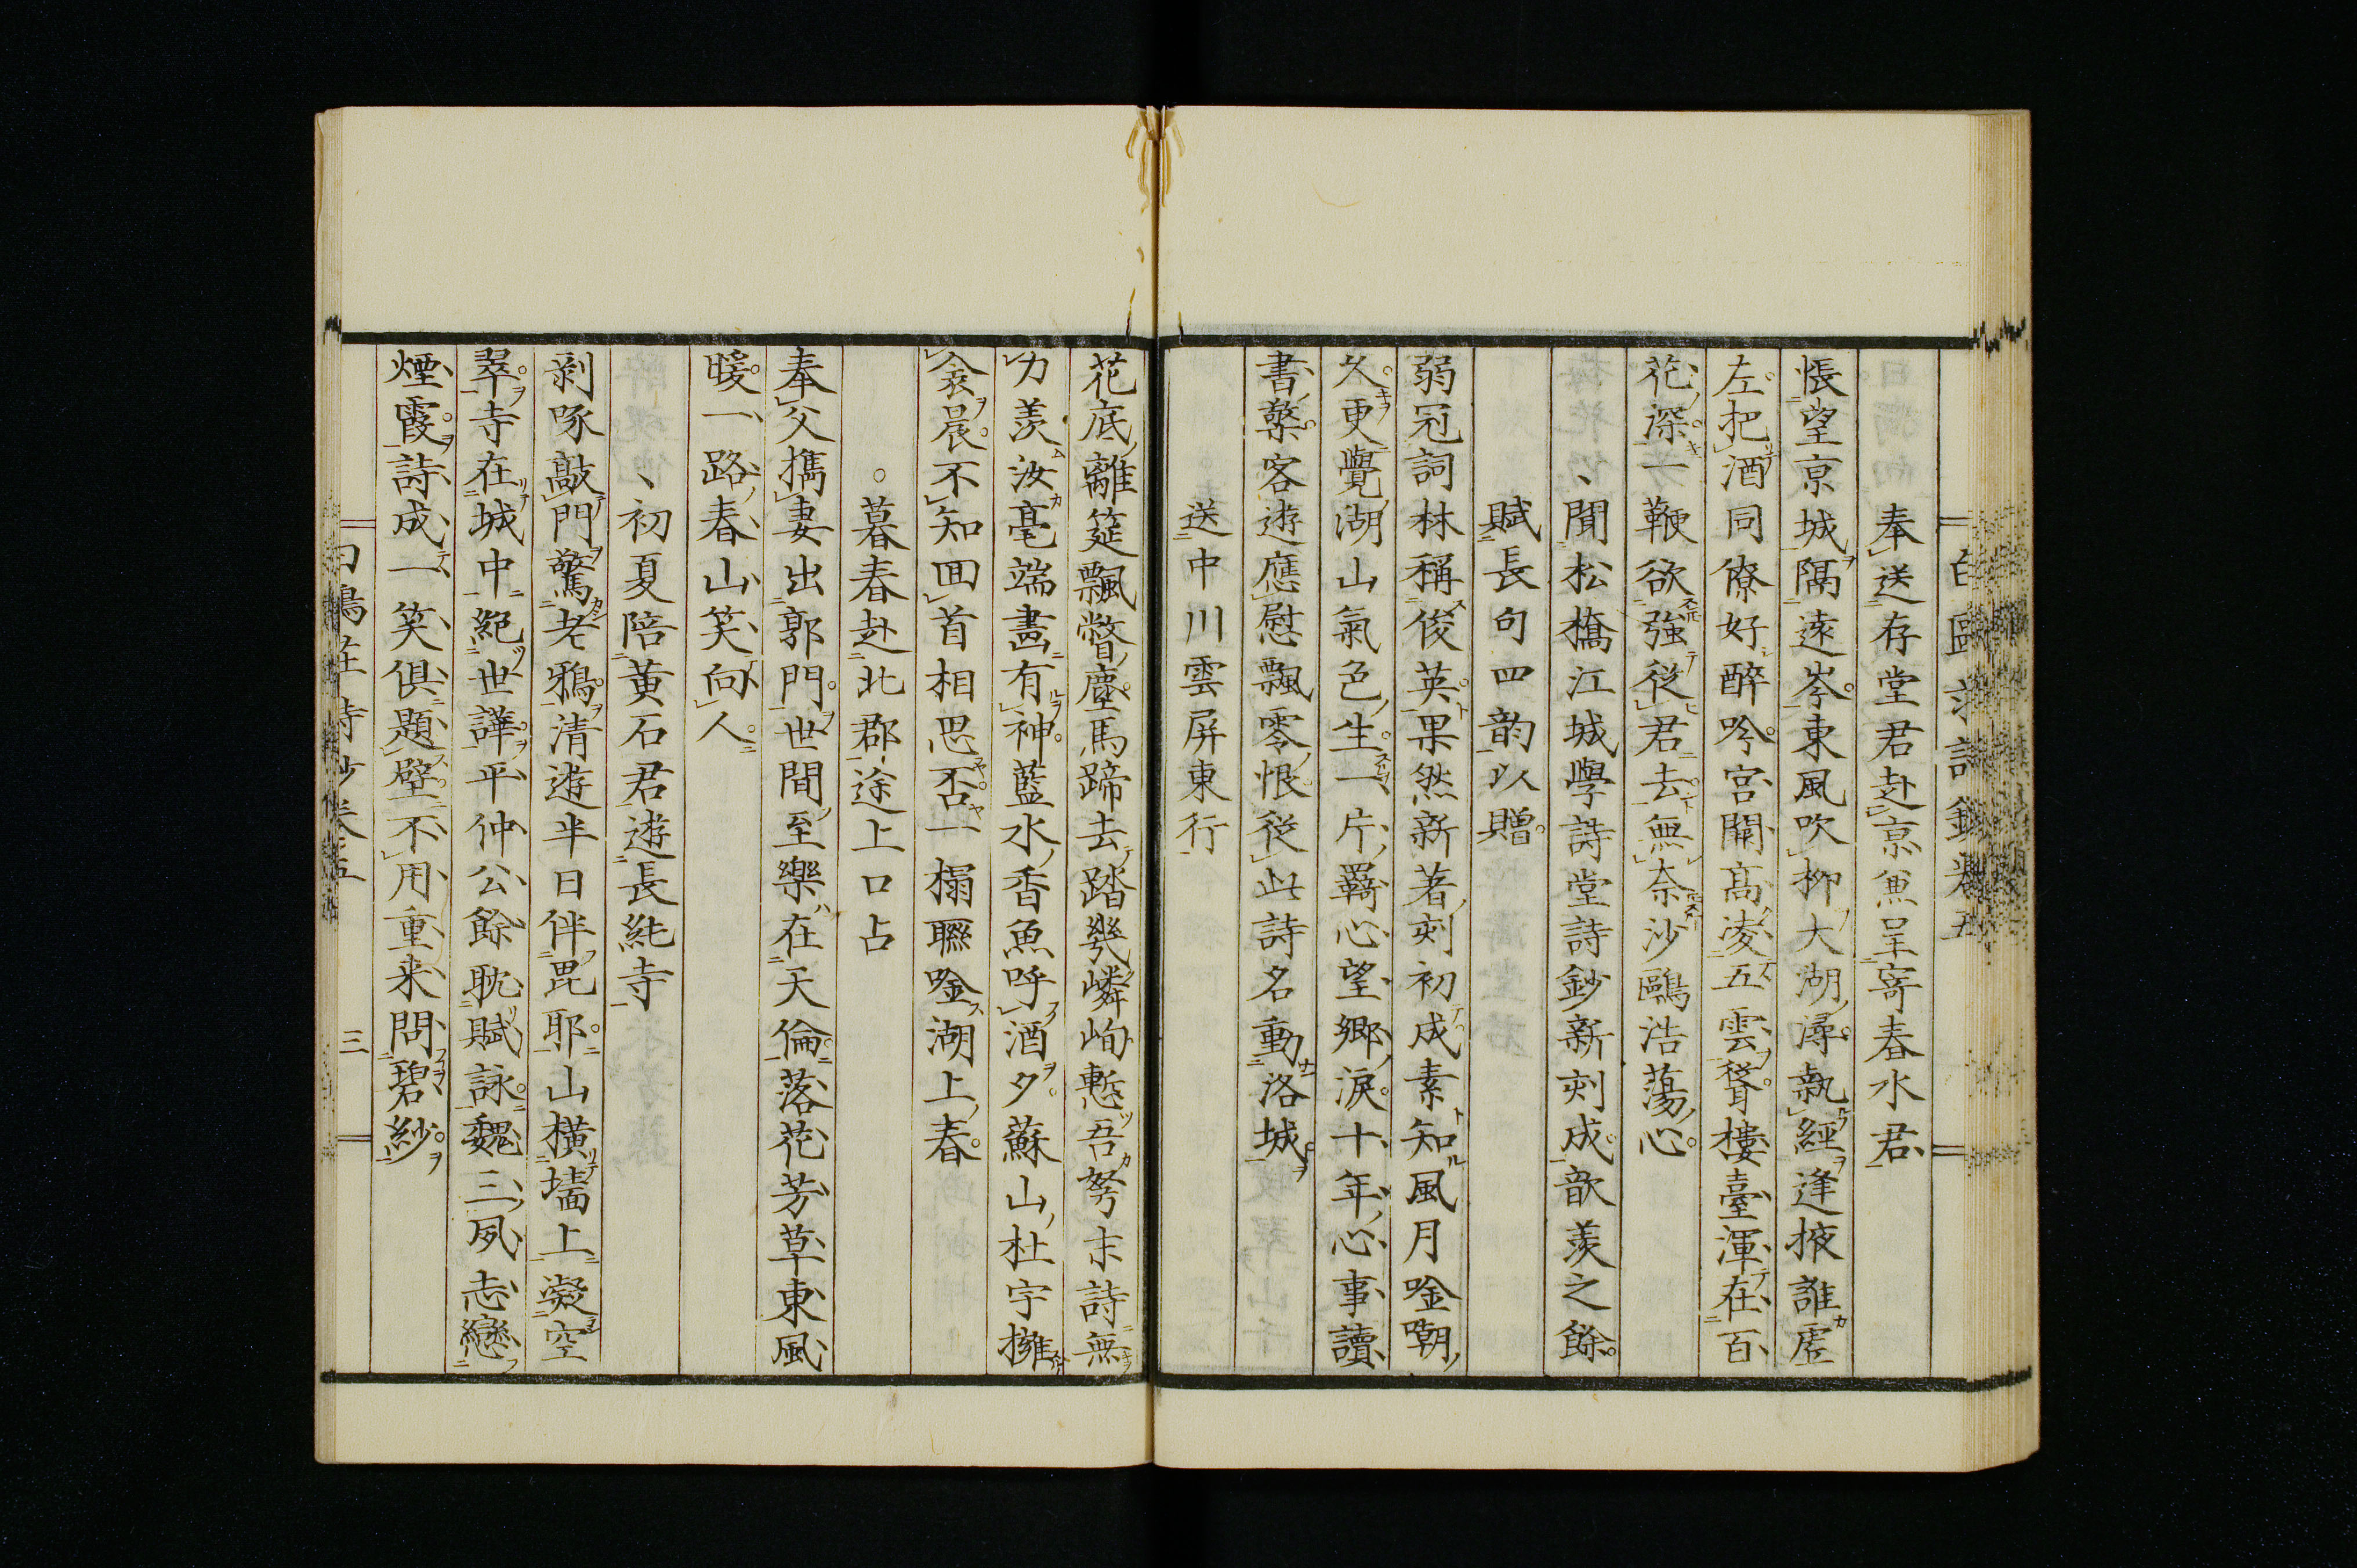 奉送存堂君赴京兼呈寄春水君
悵望京城隔遠岑東風吹柳大湖潯執經逢掖誰虛
左把酒同僚好醉吟宮闕高凌五雲聳樓臺渾在百
花深一鞭欲強從君去無奈沙鷗浩蕩心
聞松橋江城學詩堂詩鈔新刻成歆羨之餘
賦長句四韵以贈
弱冠詞林稱俊英果然新著刻初成素知風月唫嘲
久更覺湖山氣色生一片羇心望鄉淚十年心事讀
書檠客遊應慰飄零恨從此詩名動洛城
送中川雲屏東行
花底離筵飄瞥塵馬蹄去踏幾嶙峋慙吾弩末詩無
力羨汝毫端畵有神藍水香魚呼酒夕蘇山杜宇擁
衾晨不知回首相思否一榻聯唫湖上春
暮春赴北郡途上口占
奉父攜妻出郭門世間至樂在天倫落花芳草東風
暖一路春山笑向人
初夏陪黃石君遊長純寺
剥啄敲門驚老鴉清遊半日伴毘耶山橫墻上凝空
翠寺在城中絕世譁平仲公餘耽賦詠魏三夙志戀
煙霞詩成一笑俱題壁不用重来問碧紗
三